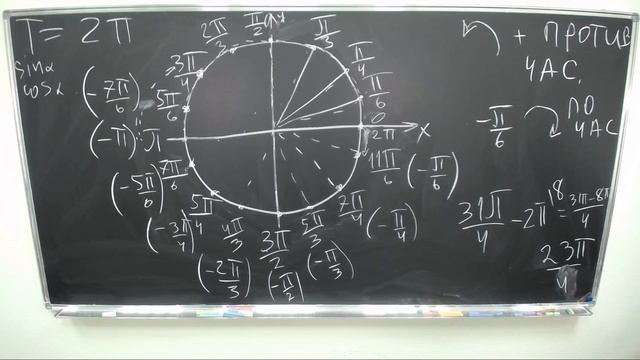 T = 2π
sin α
cos α
2π/3
π/2
y
π/3
3π/4
π/4
(-7π/6)
5π/6
π/6
0
2π
x
(-π)
π
(-5π/6)
7π/6
11π/6 (-π/6)
(-3π/4)
5π/4
4π/3
3π/2
5π/3
7π/4
(-π/4)
(-2π/3)
(-π/2)
(-π/3)
+ ПРОТИВ
ЧАС.
-π/6
ПО
ЧАС
31π/4 - 2π
23π/4